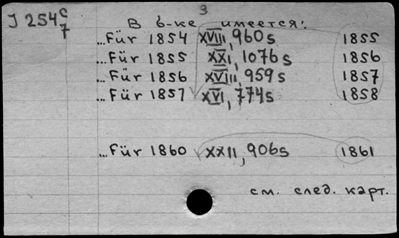 3
J 254 c/7
В б-ке имеется:
...Für 1854 XVIII, 960s 1855
...Für 1855 XXI, 1076s 1856
...Für 1856 XVIII, 959s 1857
...Für 1857 XVI, 774s 1858
...Für 1860 XXII, 906s 1861
см. след. карт.